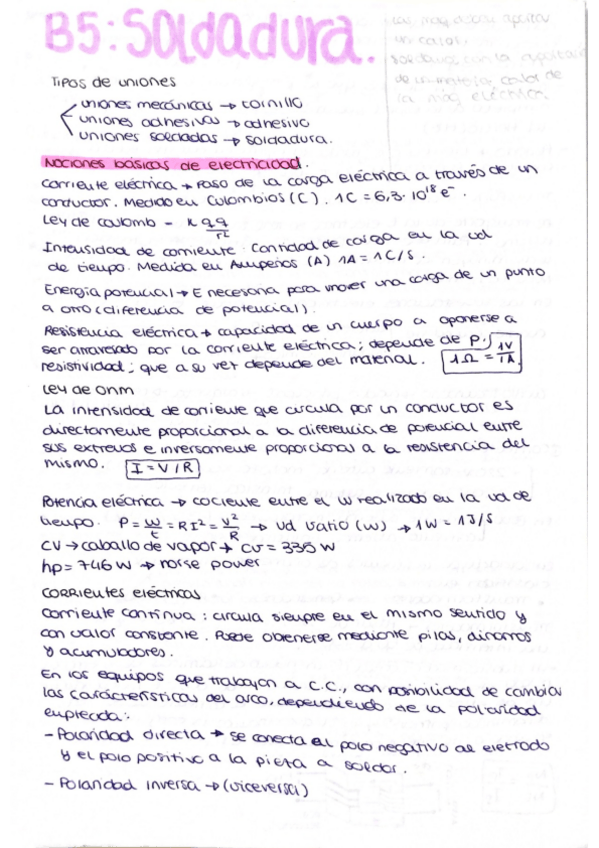 B5: Soldadura.
Tipos de uniones
uniones mecánicas → tornillo
uniones adhesivas → adhesivo
uniones soldadas → soldadura.
Nociones básicas de electricidad.
Corriente eléctrica → Paso de la carga eléctrica a través de un
conductor. Medido en Culombios (C). 1C = 6,3 · 10¹⁸ e⁻.
Ley de coulomb - K qq/r²
Intensidad de corriente · Cantidad de carga en la ud
de tiempo. Medida en Amperios (A) 1A = 1C/s.
Energía potencial → E necesaria para mover una carga de un punto
a otro (diferencia de potencial).
Resistencia eléctrica → capacidad de un cuerpo a oponerse a
ser atravesado por la corriente eléctrica; depende de P.
resistividad; que a su vez depende del material. 1Ω = 1V/1A
Ley de Ohm
La intensidad de corriente que circula por un conductor es
directamente proporcional a la diferencia de potencial entre
sus extremos e inversamente proporcional a la resistencia del
mismo. I = V/R
Potencia eléctrica → cociente entre el W realizado en la ud de
tiempo. P = W/t = RI² = V²/R → ud vatio (W) → 1W = 1J/s
CV → caballo de vapor → CV = 335 W
hp = 746 W → horse power
CORRIENTES eléctricas
Corriente continua: circula siempre en el mismo sentido y
con valor constante. Puede obtenerse mediante pilas, dinamos
y acumuladores.
En los equipos que trabajan a C.C., con posibilidad de cambiar
las características del arco, dependiendo de la polaridad
empleada:
- Polaridad directa → se conecta el polo negativo al eletrodo
y el polo positivo a la pieza a soldar.
- Polaridad inversa → (viceversa)